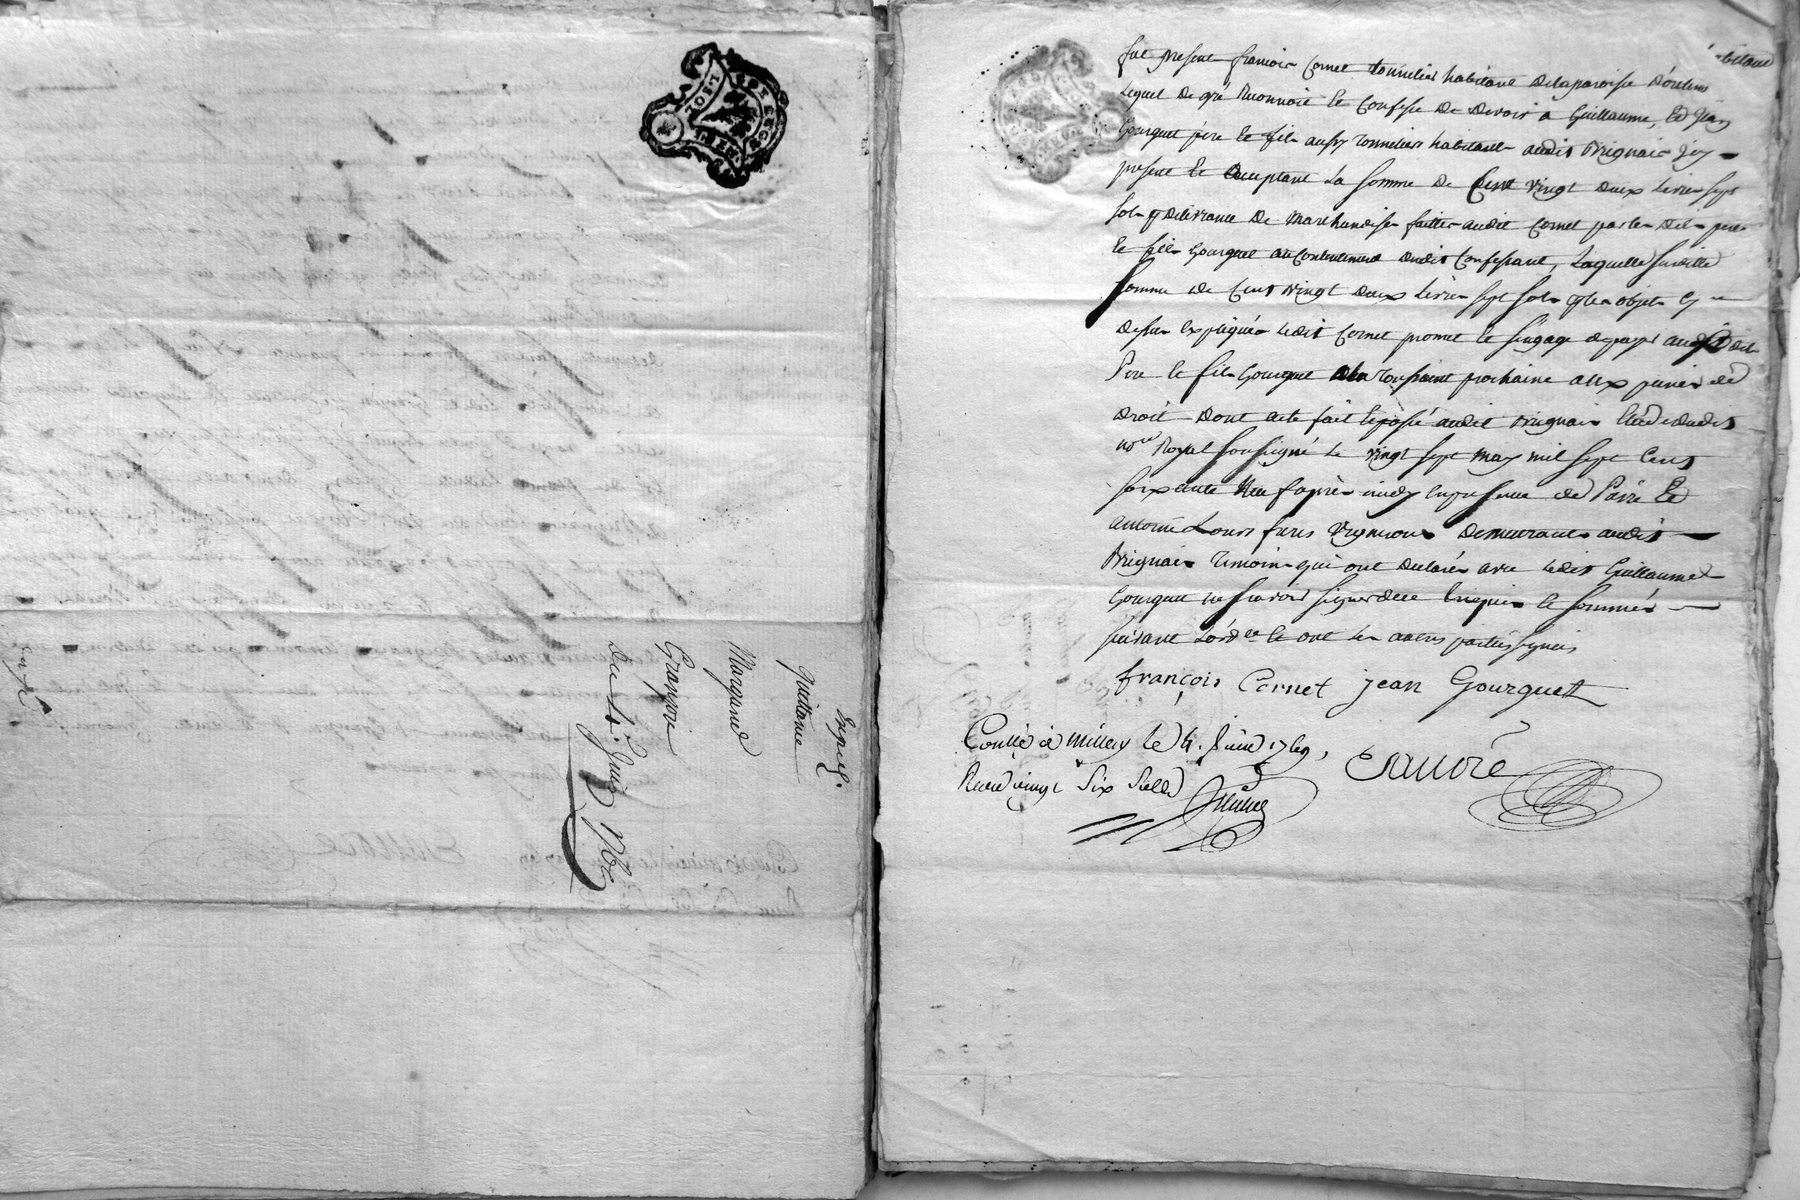 Exped.
Quittance
Margand
Granjon
du 4e. Juin 1769
fut present francois Cornet tonnelier habitant de la paroisse d'orliens
lequel de gré Reconnoit et Confesse de devoir a Guillaume, Et Jean
Gourguet pere et fils aussy tonneliers habitants audit Brignais Icy
present et acceptant la somme de Cent vingt deux livres sept
sols p delivrance de marchandises faittes audit Cornet par les dits pere
et fils Gourguet au contentement dudit Confessant, laquelle susditte
somme de Cent vingt deux livres sept sols p les objets cy
dessus expliqués ledit Cornet promet et s'engage de payer auxdits
Pere et fils Gourguet a la toussaint prochaine aux peines de
droit dont acte fait et passé audit Brignais Etude dudit
nore Royal soussigné le vingt sept may mil sept cent
soixante neuf apres midy en presence de Pierre Et
antoine Louis freres vignerons demeurants audit
Brignais temoins qui ont declaré avec ledit Guillaume
Gourguet ne savoir signer de ce Enquis et sommés
suivant l'ordce et ont les autres parties signés
françois Cornet jean Gourguet
Conllé a Millery le 4. Juin 1769,
Receu vingt Six Sols